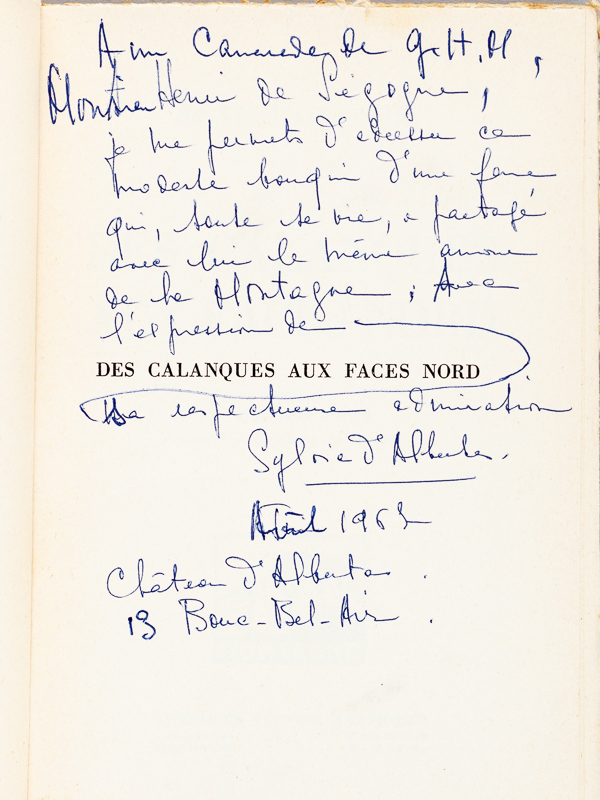 A un Camarade de G.H.M,
Monsieur Henri de Ségogne,
je me permets d'adresser ce
modeste bouquin d'une femme
qui, toute sa vie, a partagé
avec lui le même amour
de la Montagne ; Avec
l'expression de
DES CALANQUES AUX FACES NORD
Ma respectueuse admiration
Sylvia d'Albertas.
Avril 196
Château d'Albertas.
13 Bouc-Bel-Air.